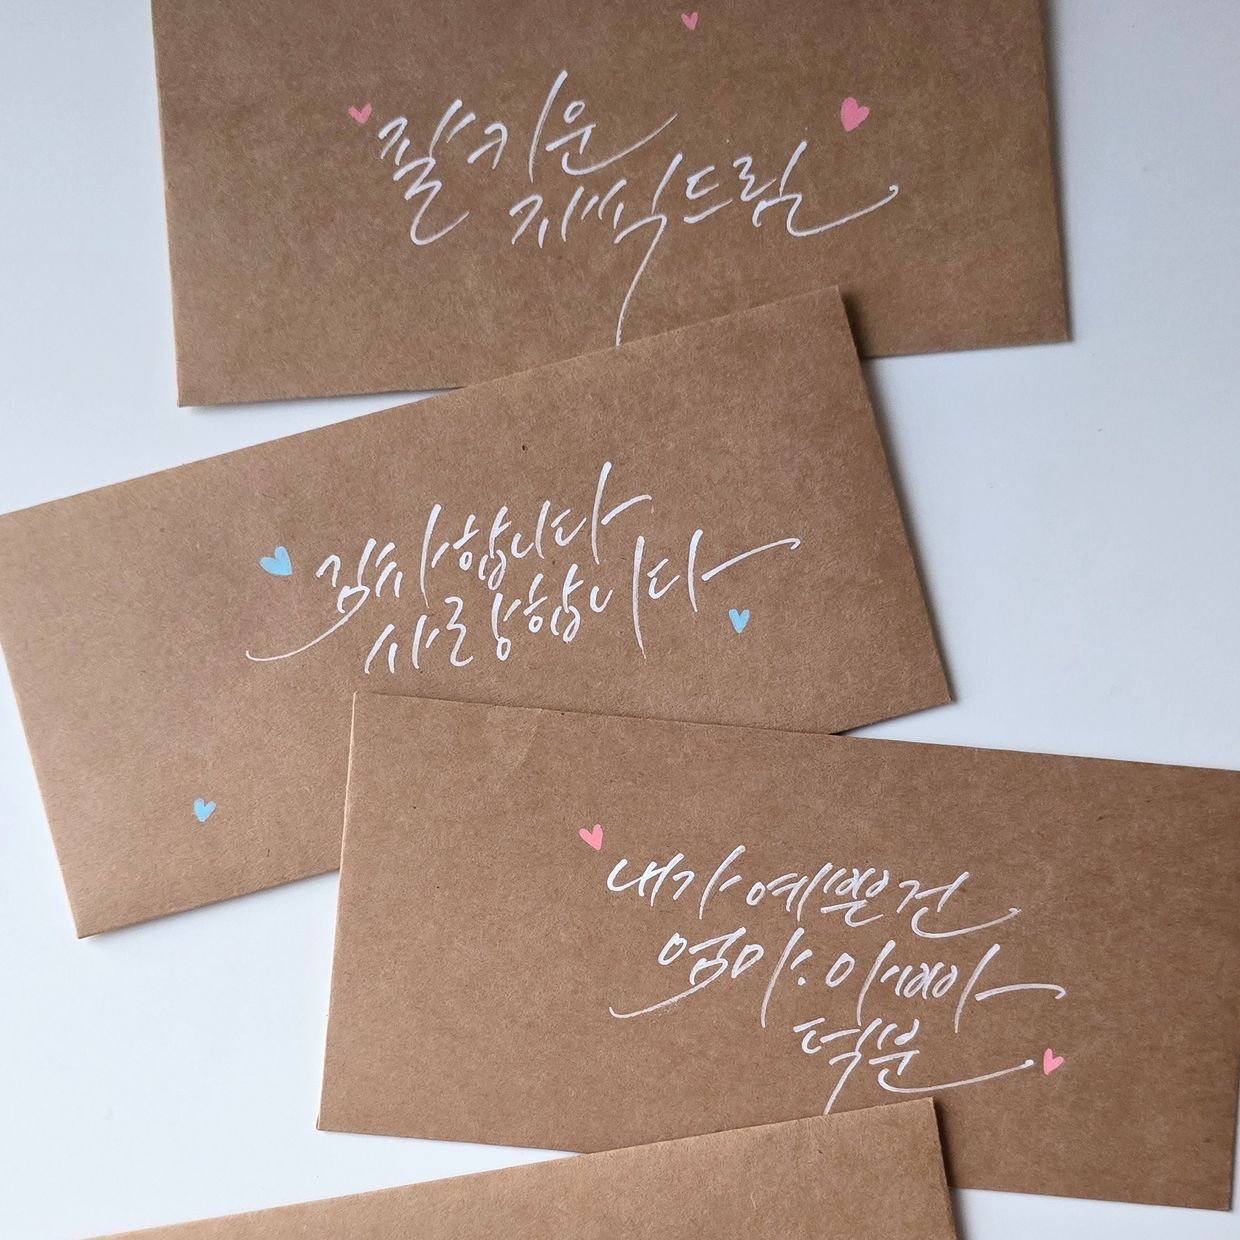 잘 키운
자식 드림
감사합니다
사랑합니다
내가 예쁜건
엄마.아빠
덕분